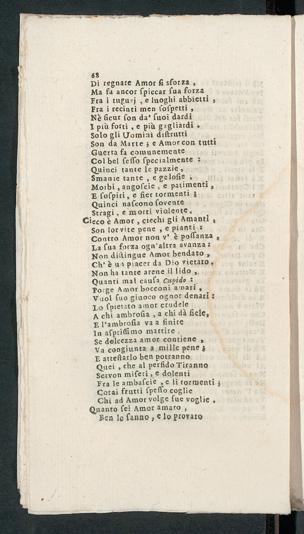 68
Di regnate Amor si sforza,
Ma fa ancor spiccar sua forza
Fra i tugurj, e luoghi abbietti,
Fra i recinti men sospetti,
Nè sicur son da' suoi dardi
I più forti, e più gagliardi.
Solo gli Uomini distrutti
Son da Marte; e Amor con tutti
Guerra fa comunemente
Col bel sesso specialmente:
Quinci tante le pazzie,
Smanie tante, e gelosie,
Morbi, angoscie, e patimenti,
E sospiri, e fier tormenti;
Quinci nascono sovente
Stragi, e morti violente.
Cieco è Amor, ciechi gli Amanti,
Son lor vite pene, e pianti:
Contro Amor non v' è possanza,
La sua forza ogn'altra avanza:
Non distingue Amor bendato,
Ch'è un piacer da Dio vietato,
Non ha tante arene il lido,
Quanti mal causa Cupido:
Porge Amor bocconi amari,
Vuol suo giuoco ognor denari:
Lo spietato amor crudele
A chi ambrosia, a chi dà fiele,
E l'ambrosia va a finire
In asprissimo martire.
Se dolcezza amor contiene,
Va congiunta a mille pene;
E attestarlo ben potranno
Quei, che al perfido Tiranno
Servon miseri, e dolenti
Fra le ambascie, e li tormenti;
Cotai frutti spesso coglie
Chi ad Amor volge sue voglie.
Quanto sei Amor amaro,
Ben lo sanno, e lo provaro